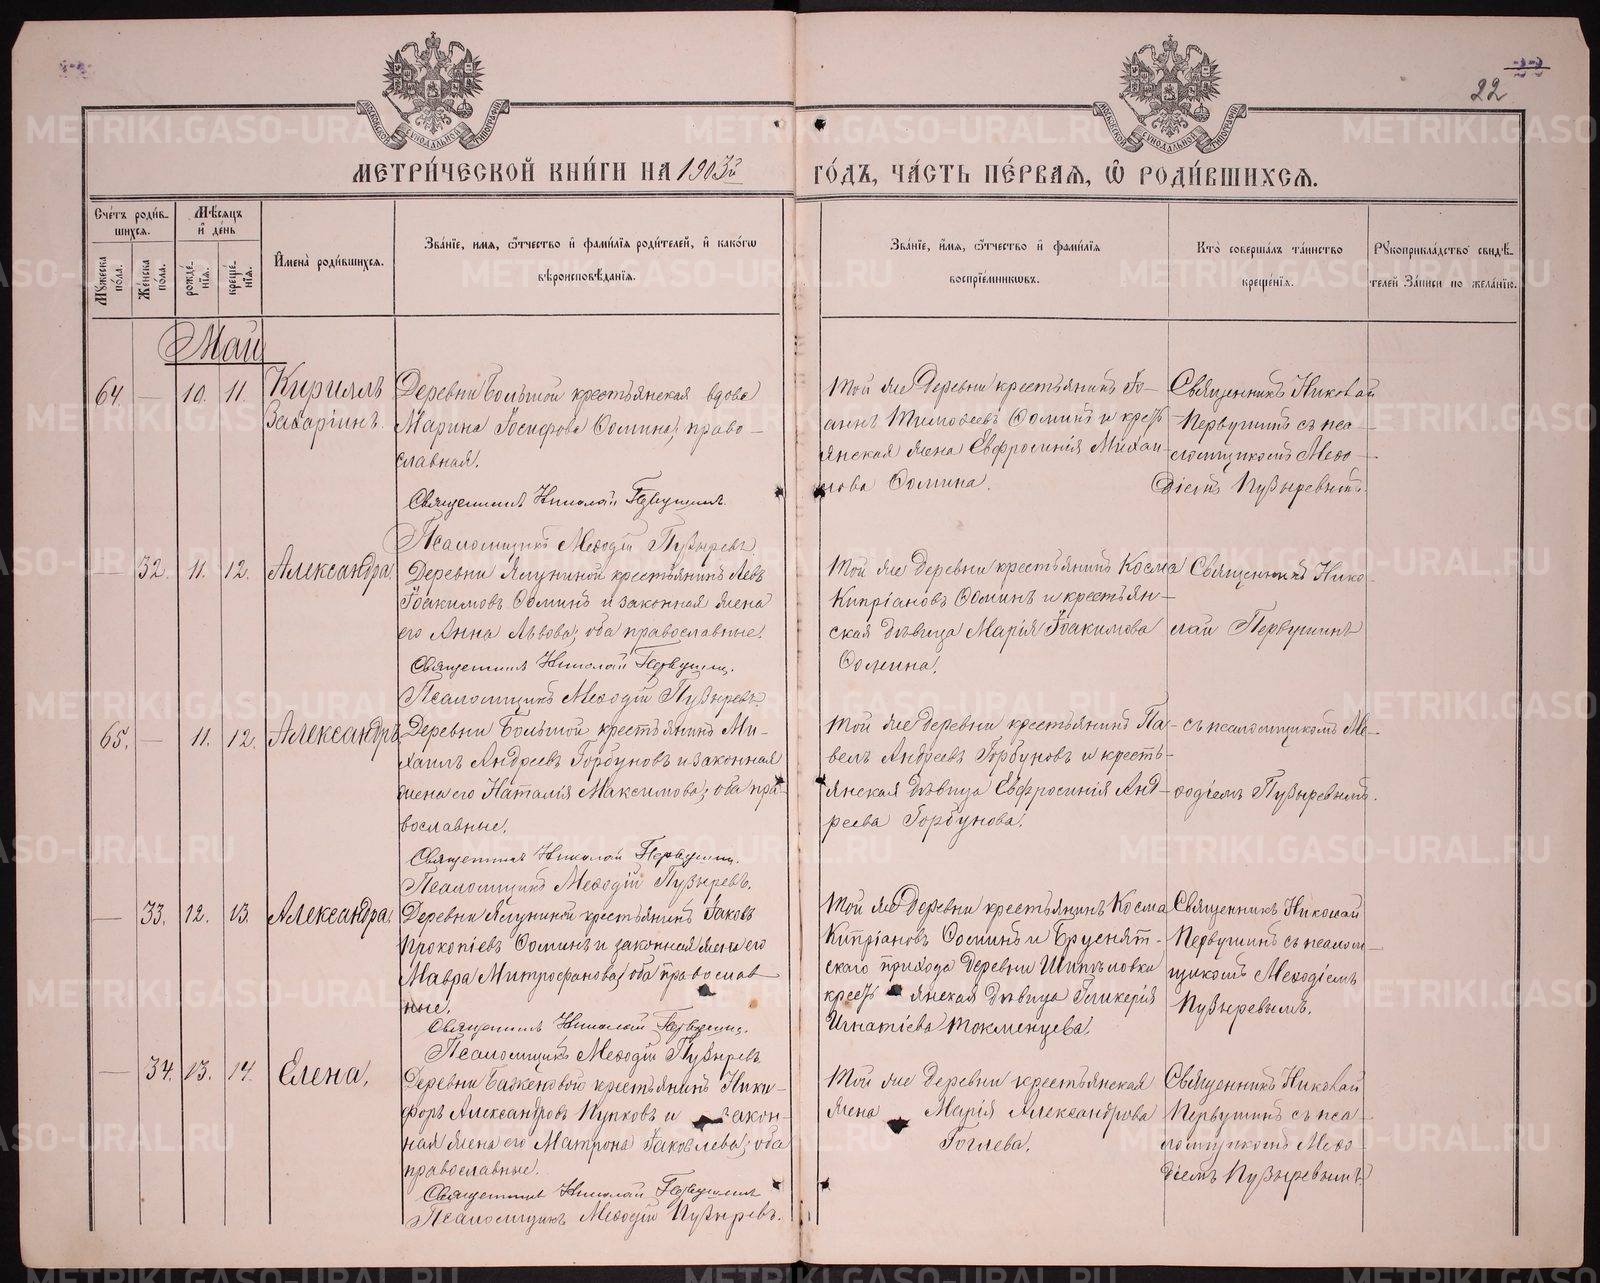 22
МЕТРИ́ЧЕСКОЙ КНИ́ГИ НА 1903й ГО́ДЪ, ЧА́СТЬ ПЕ́РВАЯ, Ѡ РОДИ́ВШИХСЯ.
Сче́тъ роди́в-
шихся.
Мꙋ́жеска по́ла.
Же́нска по́ла.
Мѣ́сяцъ
и де́нь
рожде́-
нїя.
креще́-
нїя.
Имена̀ роди́вшихся.
Зва́нїе, имя, ѻ҆́тчество и фами́лїя роди́телей, и како́гѡ
вѣроисповѣ́данїя.
Зва́нїе, и́мя, ѻ҆́тчество и фами́лїя
воспрїе́мникѡвъ.
Кто̀ соверша́лъ та́инство
креще́нїя.
Рꙋкоприкла́дство свидѣ́-
телей за́писи по жела́нїю.
Май
64. — 10. 11. Кириллъ
Захаріинъ.
Деревни Большой крестьянская вдова
Марина Іосифова Ѳомина, право-
славная.
Священникъ Николай Первушинъ.
Псаломщикъ Меѳодій Пузыревъ.
Той же деревни крестьянинъ Іо-
аннъ Тимоѳеевъ Ѳоминъ и кресть-
янская жена Евфросинія Михаи-
лова Ѳомина.
Священникъ Николай
Первушинъ съ пса-
ломщикомъ Меѳо-
діемъ Пузыревымъ.
— 32. 11. 12. Александра.
Деревни Ягуниной крестьянинъ Левъ
Іоакимовъ Ѳоминъ и законная жена
его Анна Львова; оба православные.
Священникъ Николай Первушинъ.
Псаломщикъ Меѳодій Пузыревъ.
Той же деревни крестьянинъ Косма
Кипріановъ Ѳоминъ и крестьян-
ская дѣвица Марія Іоакимова
Ѳомина.
Священникъ Нико-
лай Первушинъ
65. — 11. 12. Александръ.
Деревни Большой крестьянинъ Ми-
хаилъ Андреевъ Горбуновъ и законная
жена его Наталія Максимова; оба пра-
вославные.
Священникъ Николай Первушинъ.
Псаломщикъ Меѳодій Пузыревъ.
Той же деревни крестьянинъ Па-
велъ Андреевъ Горбуновъ и кресть-
янская дѣвица Евфросинія Анд-
реева Горбунова.
съ псаломщикомъ Ме-
ѳодіемъ Пузыревымъ.
— 33. 12. 13. Александра.
Деревни Ягуниной крестьянинъ Іаковъ
Прокопіевъ Ѳоминъ и законная жена его
Мавра Митрофанова; оба православ
ные.
Священникъ Николай Первушинъ.
Псаломщикъ Меѳодій Пузыревъ.
Той же деревни крестьянинъ Косма
Кипріановъ Ѳоминъ и Бруснят-
скаго прихода деревни Шипѣловки
кресть янская дѣвица Гликерія
Игнатіева Токменцева.
Священникъ Николай
Первушинъ съ псалом-
щикомъ Меѳодіемъ
Пузыревымъ.
— 34. 13. 14. Елена.
Деревни Баженовой крестьянинъ Ники-
форъ Александровъ Пупковъ и закон-
ная жена его Матрона Іаковлева; оба
православные.
Священникъ Николай Первушинъ
Псаломщикъ Меѳодій Пузыревъ.
Той же деревни крестьянская
жена Марія Александрова
Гоглева.
Священникъ Николай
Первушинъ съ пса-
ломщикомъ Меѳо-
діемъ Пузыревымъ.
METRIKI.GASO-URAL.RU